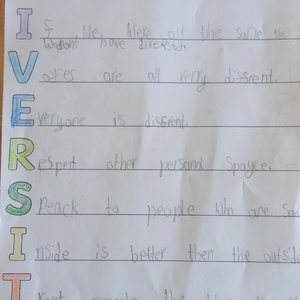 If We Were all the same We
Woudont have diversity
are all very diffrent.
Everyone is diffrent.
Respect other persand spayce.
SPeack to people Who are
Inside is better then the outside
T people the